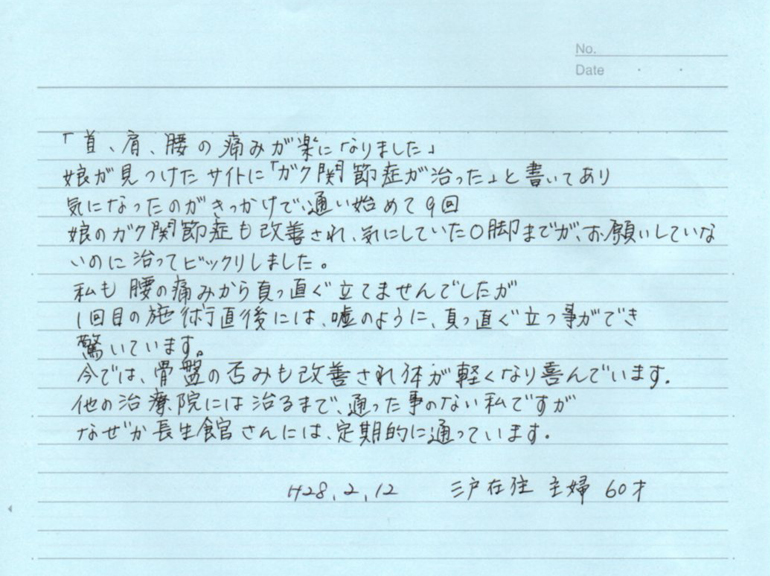 No.
Date ・ ・
「首、肩、腰の痛みが楽になりました」
娘が見つけたサイトに「ガク関節症が治った」と書いてあり
気になったのがきっかけで、通い始めて9回
娘のガク関節症も改善され、気にしていたO脚までが、お願いしていな
いのに治ってビックリしました。
私も腰の痛みから真っ直ぐ立てませんでしたが
1回目の施術直後には、嘘のように、真っ直ぐ立つ事ができ
驚いています。
今では、骨盤の歪みも改善され体が軽くなり喜んでいます.
他の治療院には治るまで、通った事のない私ですが
なぜか長生館さんには、定期的に通っています.
H28.2.12 三戸在住 主婦 60才